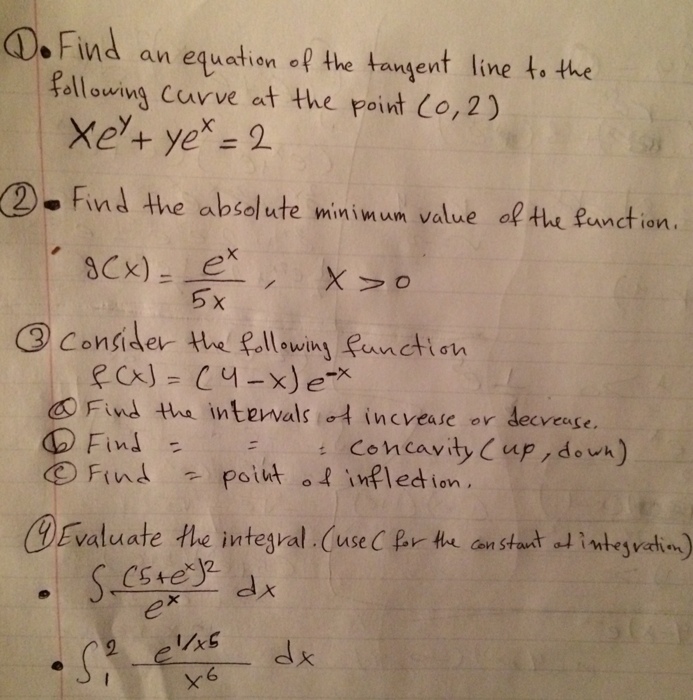 ①. Find an equation of the tangent line to the
following curve at the point (0,2)
xe^y + ye^x = 2
②. Find the absolute minimum value of the function.
g(x) = e^x / 5x , x > 0
③ Consider the following function
f(x) = (4-x)e^-x
ⓐ Find the intervals of increase or decrease.
ⓑ Find = = = concavity (up, down)
ⓒ Find = point of inflection.
④ Evaluate the integral. (use C for the constant of integration)
• ∫ (5+e^x)^2 / e^x dx
• ∫_1^2 e^1/x^5 / x^6 dx